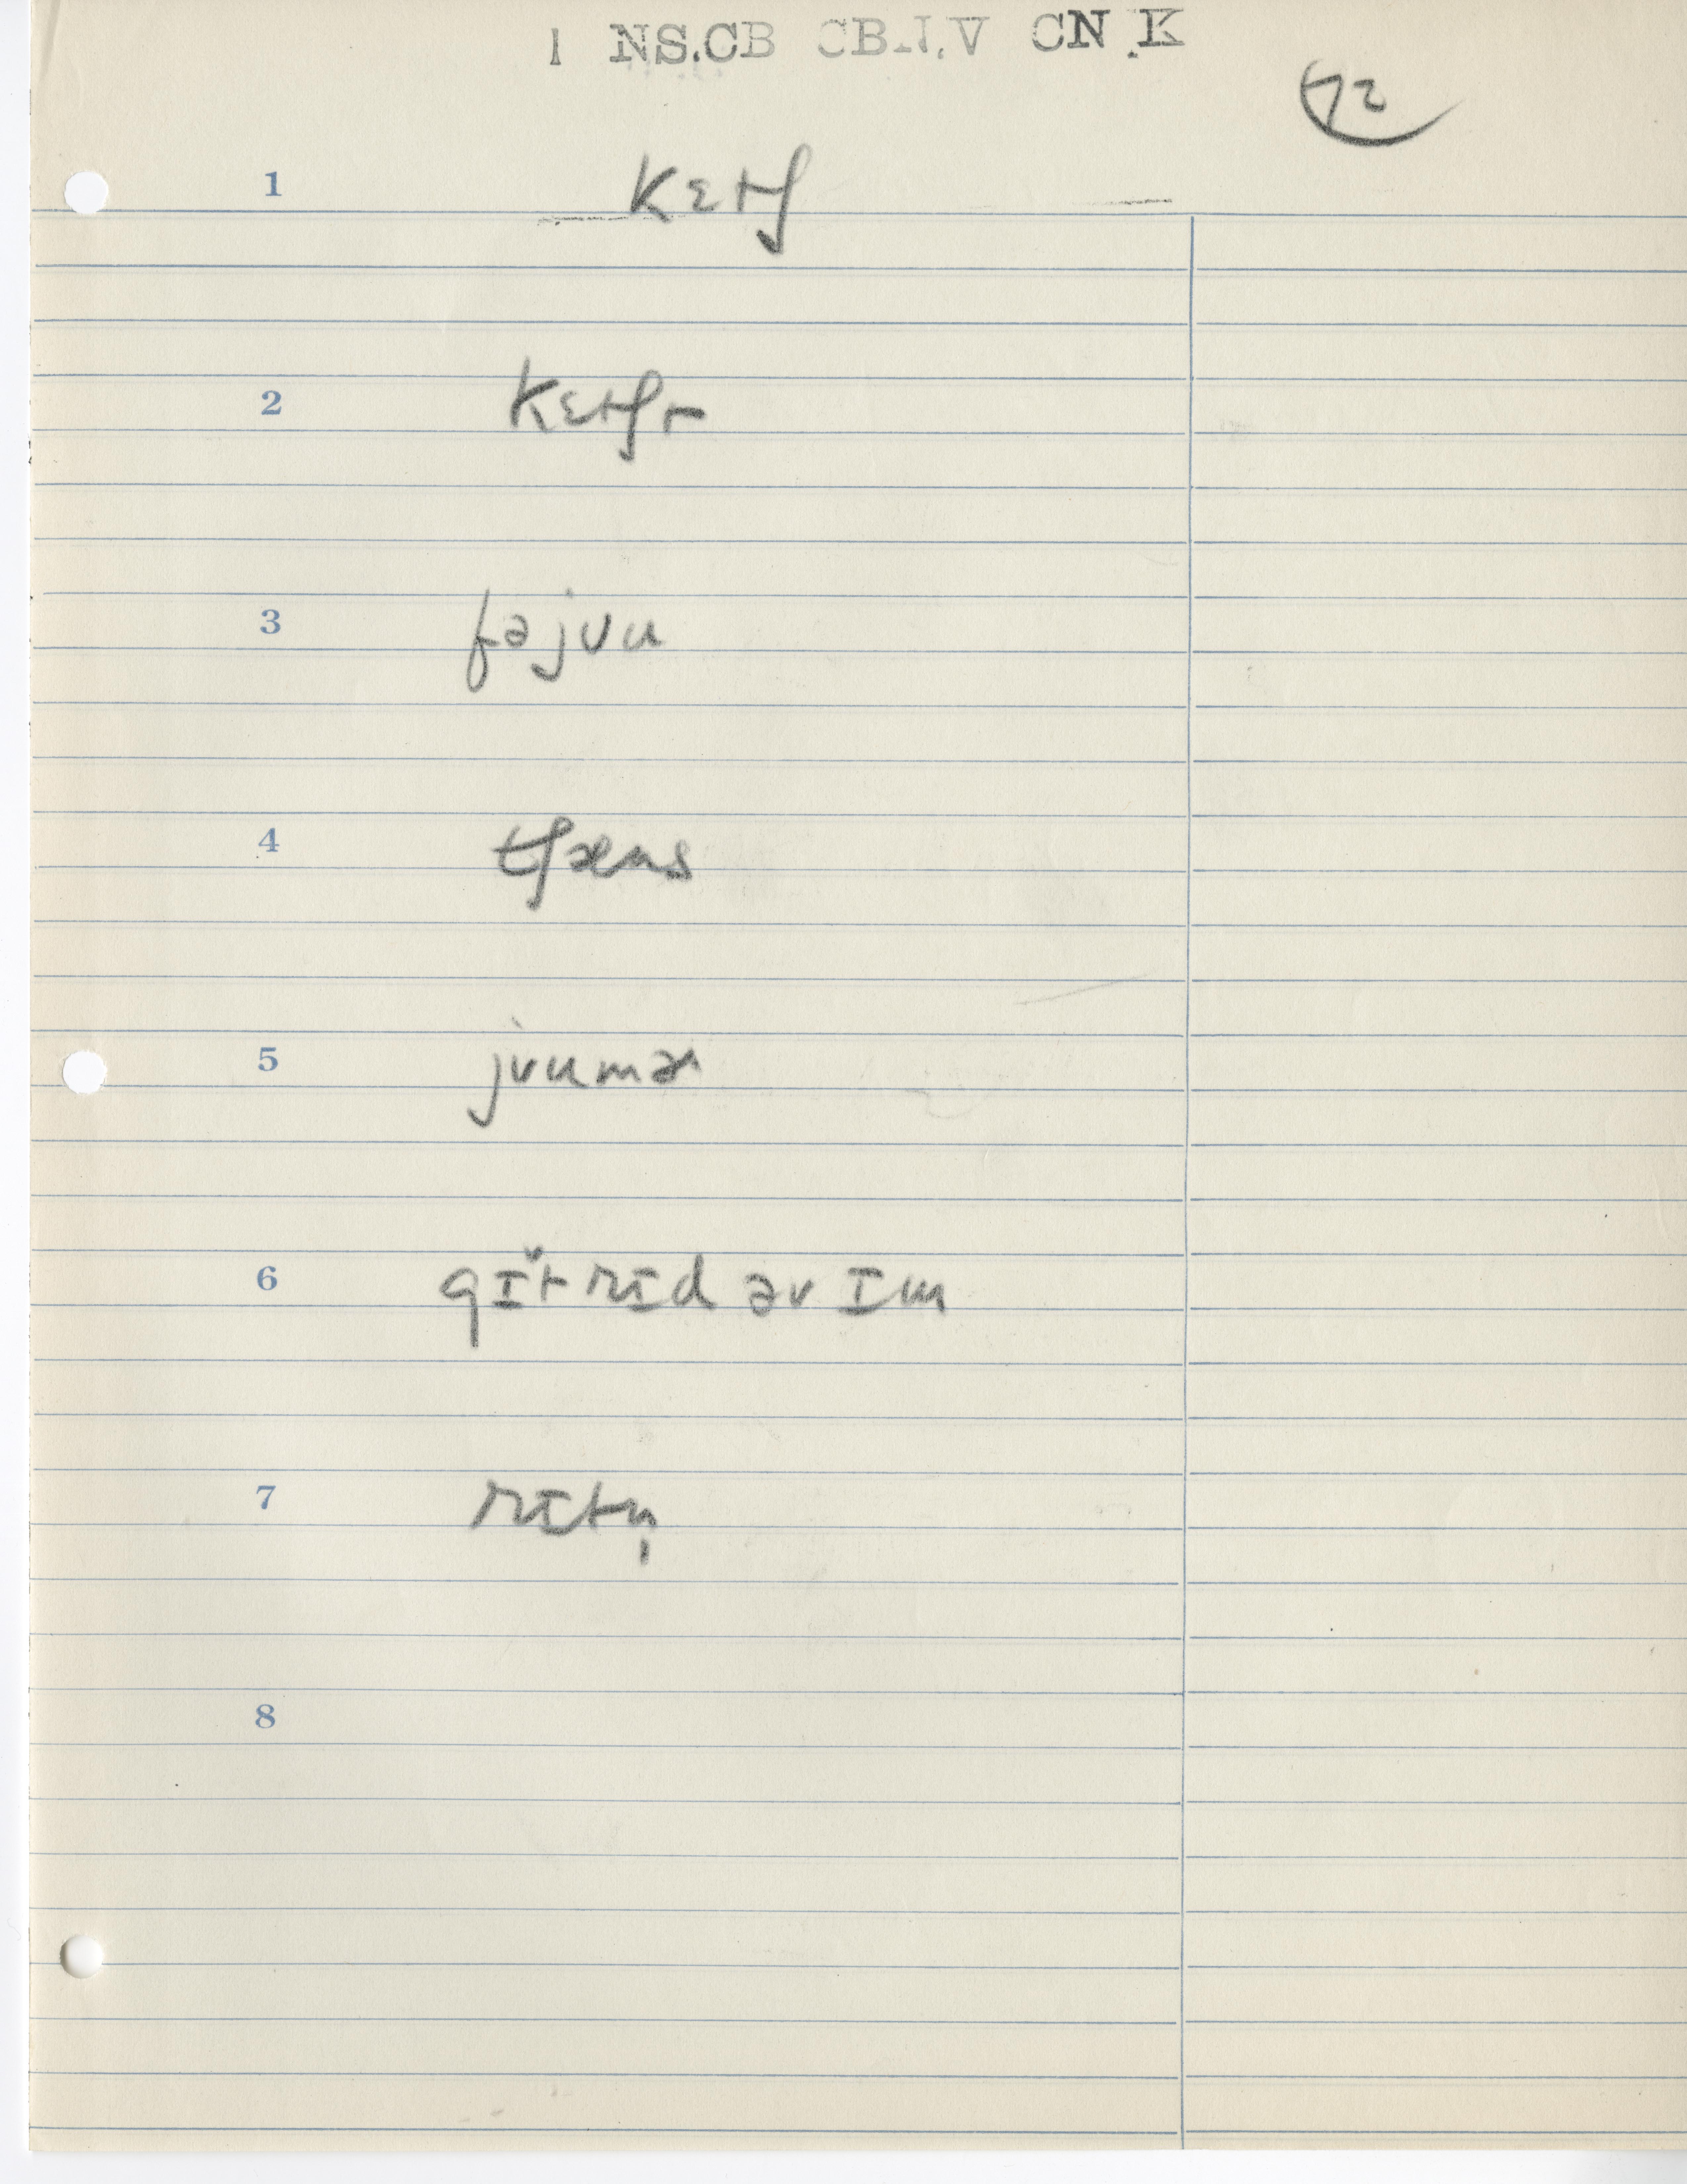 1 NS.CB CB.N.V CN.K
72
1 kɛtʃ
2 kɛtʃt
3 fəjuu
4 tʃæns
5 juumɚ
6 gɪt̬ rɪd əv ɪm
7 rɪtn̩
8